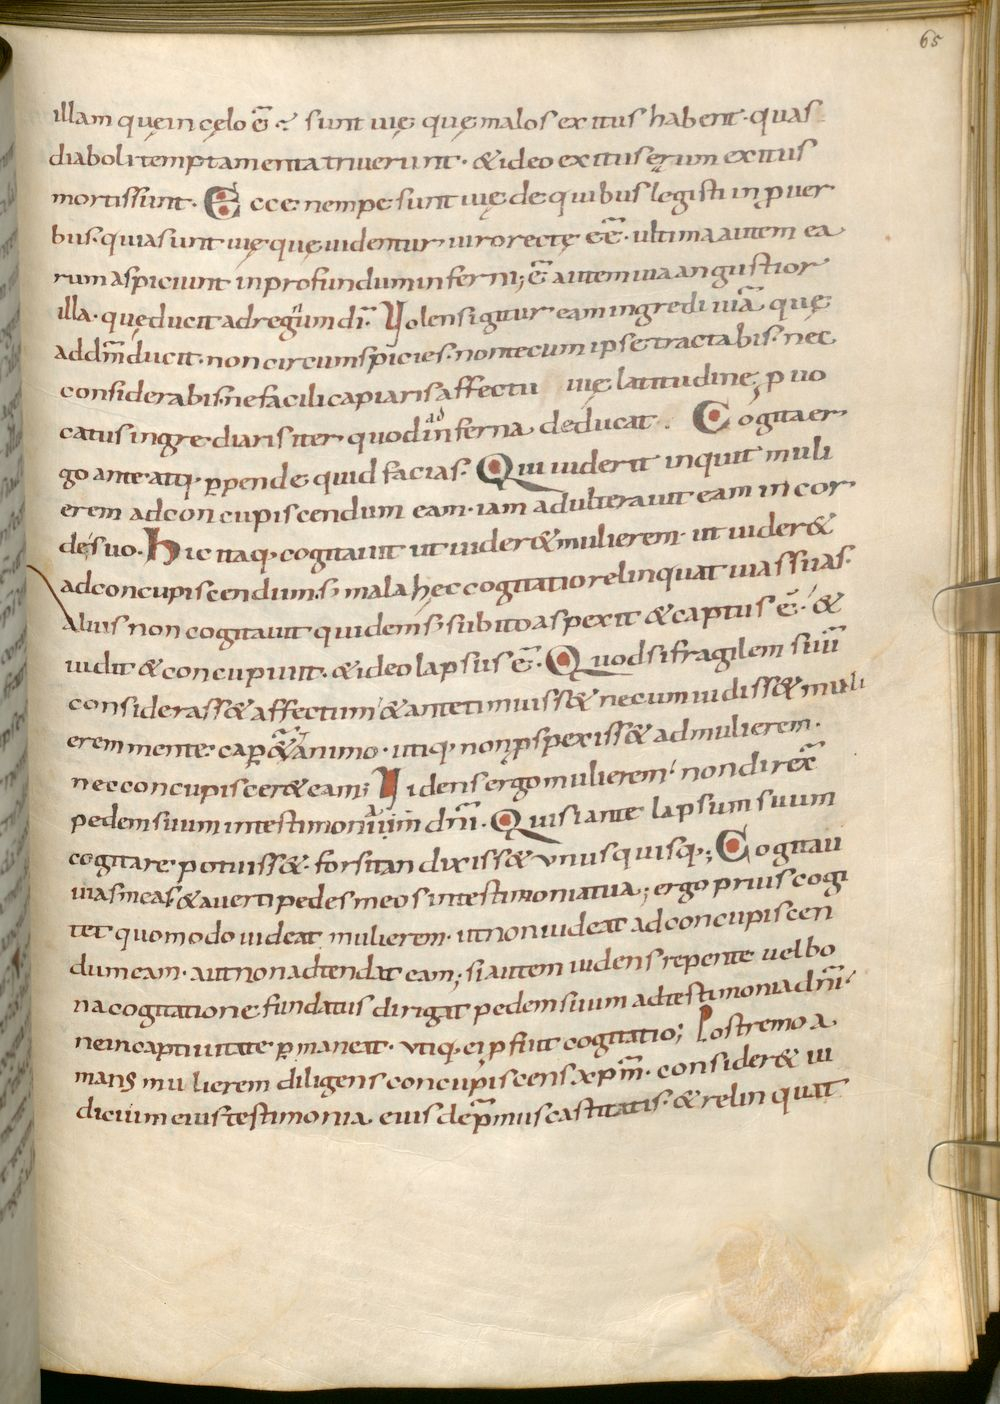 65
illam quę in cęlo ē ·/ sunt uię quę malos exitus habent · quas
diaboli temptamenta triuerunt · & ideo exitus ęrum exitus
mortis sunt · Ecce nempe sunt uię de quibus legisti in puer
bus · quia sunt uię quę uidentur uiro rectę eē · ultima autem ea
rum aspiciunt in profundum inferni; ē autem uia angustior
illa · quę ducit ad regnum dī · Volens igitur eam ingredi uiā quę
ad dm̄ ducit · non circumspicies · non tecum ipse tractabis · nec
considerabis · ne facili capiaris affectu uię latitudine, p uo
catus ingrediaris iter quod ad inferna deducat . Cogita er
go ante atq· ppende quid facias · Qui uiderit inquit muli
erem ad concupiscendum eam · iam adulterauit eam in cor
de suo · Hic itaq· cogitauit ut uider& mulierem · ut uider&
ad concupiscendum · s; mala hęc cogitatio relinquat uias suas ·
Alius non cogitauit quidem s; subito aspexit & captus ē · &
uidit & concupiuit · & ideo lapsus ē · Quod si fragilem suū
considerass& affectum & ante timuiss& ne cum uidiss& muli
erem mente caper&ur animo · utiq· non pspexiss& ad mulierem ·
nec concupiscer& eam; Videns ergo mulierem · non direx̄
pedem suum in testimonium dn̄i · Qui si ante lapsum suum
cogitare potuiss& · forsitan dixiss& unusquisq·; Cogitaui
uias meas & auerti pedes meos in testimonia tua; ergo prius cogi
tet quomodo uideat mulierem · ut non uideat ad concupiscen
dum eam · aut non adtendat eam; si autem uidens repente uel bo
na cogitatione fundatus dirigat pedem suum ad testimonia dn̄i ·
ne in captiuitate pmaneat · utiq· ei p fuit cogitatio; Postremo a
mans mulierem diligens concupiscens xpm̄ · consider& iu
dicium eius testimonia eius de p̄mus castitatis · & relinquat